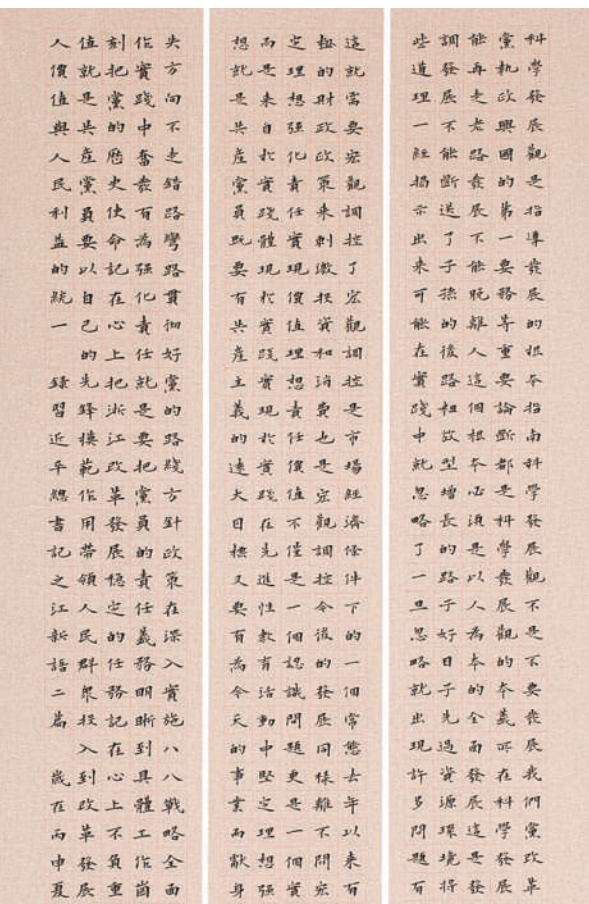 科學發展觀是指導發展的根本指南科學發展觀不是不要發展我們黨改革
黨執政興國的第一要務等重要論斷都是科學發展觀的本義所在科學發展
能再走老路發展不能脫離人這個根本必須是以人為本的全面發展這是發
調發展不能斷送了子孫的後路粗放型增長的路子好日子先過資源環境得
些道理一經揭示出來可能在實踐中就忽略了一旦忽略就出現許多問題有
這就需要宏觀調控了宏觀調控是市場經濟條件下的一個常態去年以來有
極的財政政策來刺激投資和消費也是宏觀調控今後的發展同樣離不開宏
定理想強化責任實現價值理想責任價值不僅是一個認識問題更是一個實
而是來自於實踐體現於實踐實現於實踐在先進性教育活動中堅定理想強
想就是共產黨員既要有共產主義的遠大目標又要有為今天的事業而獻身
失方向不走錯路彎路貫徹好黨的路綫方針政策在深入實施八八戰略全面
作實踐中奮發有為強化責任就是要把黨員的責任義務明晰到具體工作崗
刻把黨的歷史使命記在心上把浙江改革發展穩定的任務記在心上不負重
值就是共產黨員要以自己的先鋒模範作用帶領人民群眾投入到改革發展
人價值與人民利益的統一 錄習近平總書記之江新語二篇 歲在丙申夏